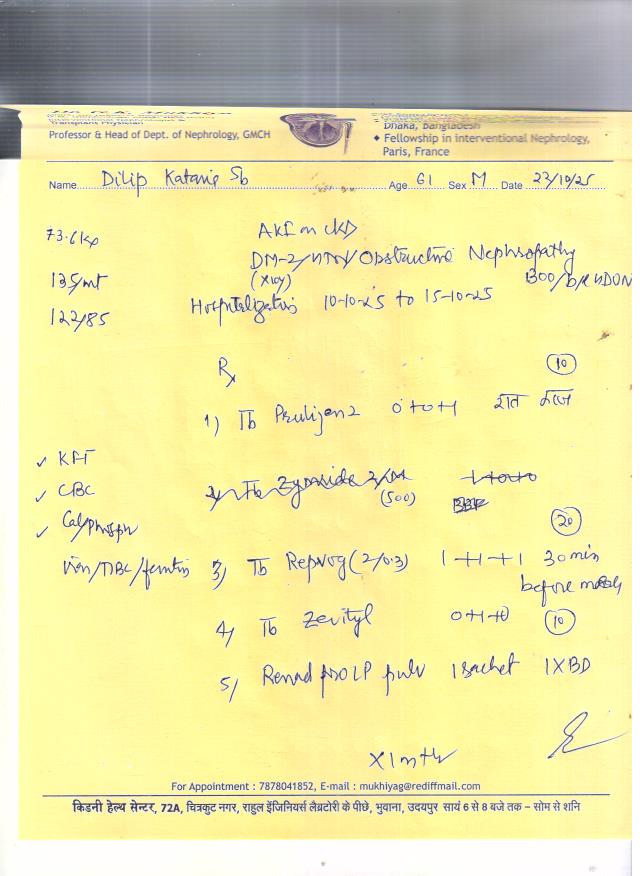 Professor & Head of Dept. of Nephrology, GMCH
Dhaka, Bangladesh
♦ Fellowship in interventional Nephrology,
Paris, France
Name Dilip Kataria Sb Age 61 Sex M Date 23/10/25
73.6kg
AKI on CKD
DM-2/HTN/Obstructive Nephropathy
(x10y)
BOO/b/l HDUN
135/mt
122/85
Hospitalization 10-10-25 to 15-10-25
Rx
(10)
1) Tb 0+0+1 रात
✓ KFT
✓ CBC
2) Tb 1+0+0
(500)
✓ Cal/Phosph
(20)
Iron/TIBC/ferritin
3) Tb Repvog (2/0.3) 1+1+1 30 min
before meals
4) Tb Zevityl 0+1+0 (10)
5) Renad PRO LP pulv 1 sachet 1XBD
X1mth
For Appointment : 7878041852, E-mail : mukhiyag@rediffmail.com
किडनी हेल्थ सेन्टर, 72A, चित्रकुट नगर, राहुल इंजिनियर्स लैब्रटोरी के पीछे, भुवाना, उदयपुर सायं 6 से 8 बजे तक – सोम से शनि